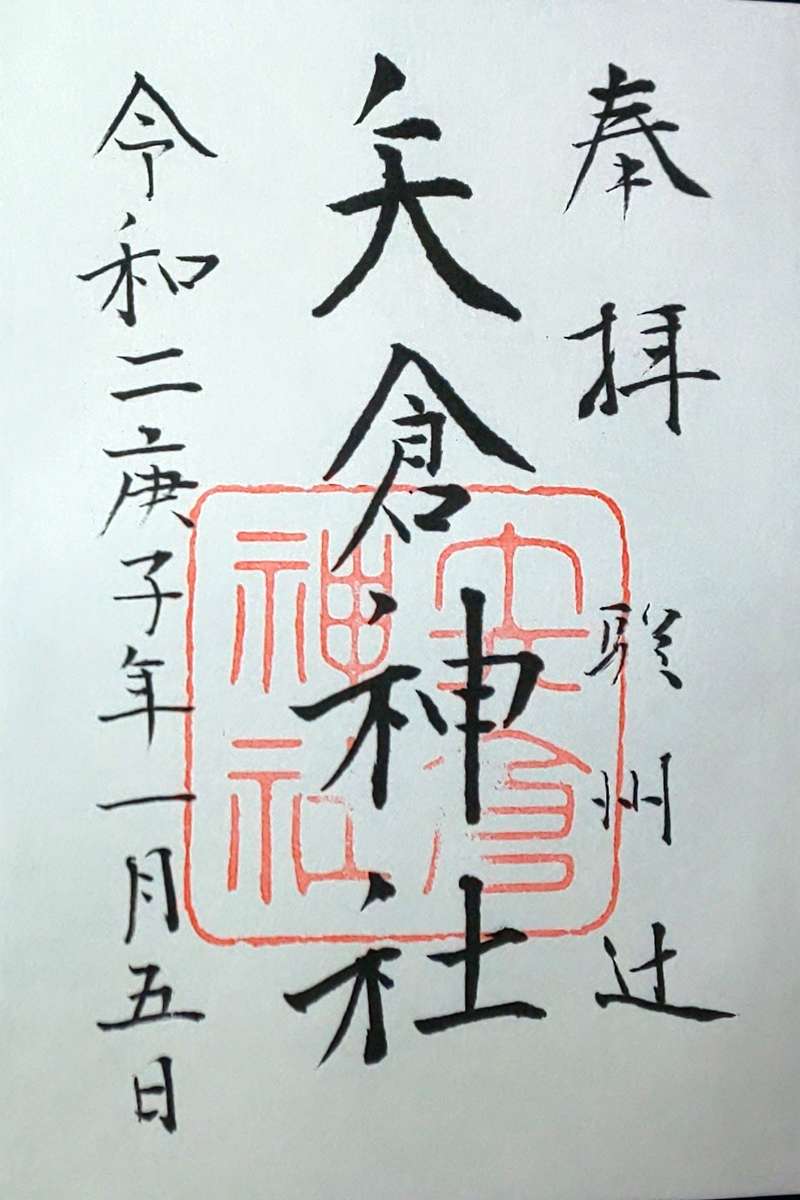 奉拝 駿州辻
矢倉神社
令和二庚子年一月五日
矢倉
神社